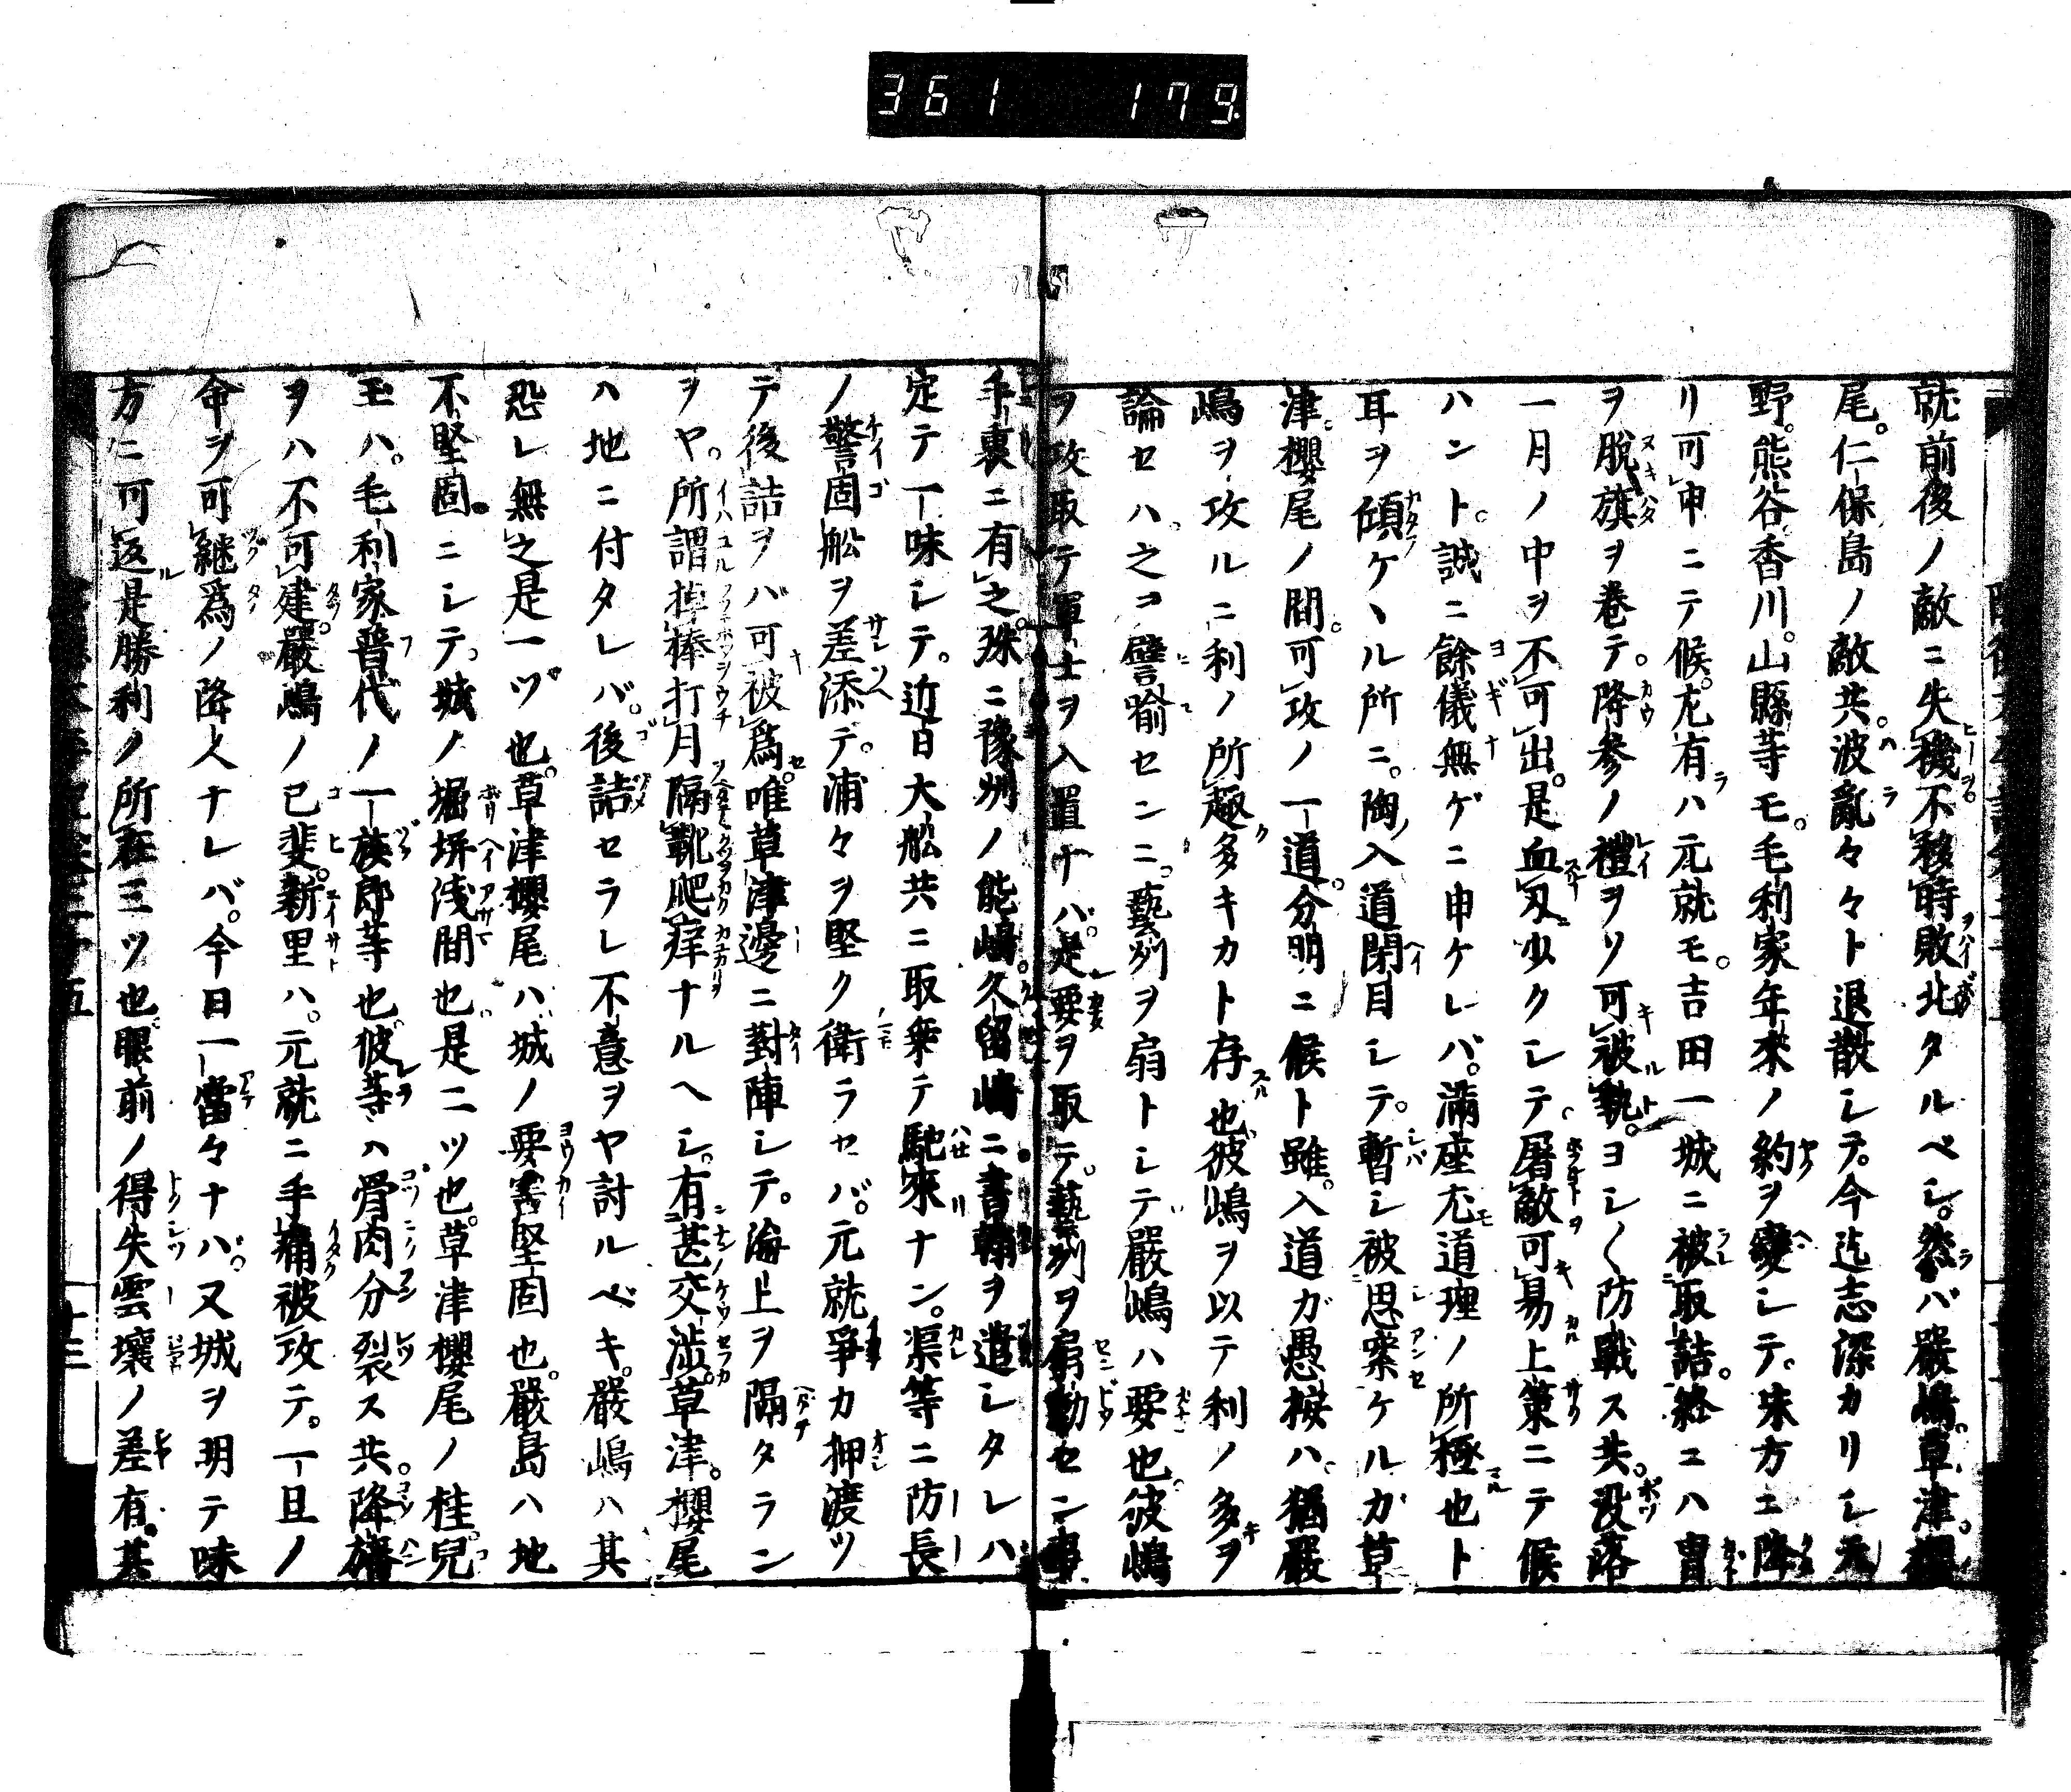 361 179
就前後ノ敵ニ失機不移時敗北タルベシ。然バ嚴嶋。草津。櫻
尾。仁保島ノ敵共。波亂々々ト退散シテ。今迄志深カリシ
野。熊谷。香川。山縣等モ。毛利家年來ノ約ヲ變シテ。味方ニ降
リ可申ニテ候。尤有ハ元就モ。吉田一城ニ被取詰。終ニハ冑
ヲ脱旗ヲ巻テ。降参ノ禮ヲソ可被執。ヨシ〱防戰ス共。没落
一月ノ中ヲ不可出。是血刄少クシテ。屠敵可易上策ニテ候
ハント。誠ニ餘儀無ゲニ申ケレバ。滿座尤道理ノ所極也ト
耳ヲ傾ケヽル所ニ。陶入道閉目シテ。暫シ被思案ケルガ草
津。櫻尾ノ間。可攻ノ一道。分明ニ候ト雖。入道ガ愚按ハ。猶嚴
嶋ヲ攻ルニ利ノ所趣多キカト存也。彼嶋ヲ以テ利ノ多ヲ
論セハ。之ヲ譬喩センニ。藝州ヲ扇トシテ嚴嶋ハ要也。彼嶋
ヲ攻取テ軍士ヲ入置ナバ。是要ヲ取テ。藝州ヲ扇動セン事
手裏ニ有之。殊ニ豫州ノ能嶋。久留嶋ニ書翰ヲ遣シタレハ
定テ一味シテ。近日大舩共ニ取乗テ馳來ナン。渠等ニ防長
ノ警固舩ヲ差添テ。浦々ヲ堅ク衛ラセバ。元就爭カ押渡ツ
テ後詰ヲバ可被爲。唯草津邊ニ對陣シテ。海上ヲ隔タラン
ヲヤ。所謂掉棒打月隔靴爬痒ナルヘシ。有甚交渉。草津。櫻尾
ハ地ニ付タレバ。後詰セラレ不意ヲヤ討ルベキ。嚴嶋ハ其
恐レ無之是一ツ也。草津櫻尾ハ城ノ要害堅固也。嚴島ハ地
不堅固ニシテ。城ノ堀塀浅間也是二ツ也。草津櫻尾ノ桂。兒
玉ハ。毛利家普代ノ一族郎等也。彼等ハ骨肉分裂ス共。降幡
ヲハ不可建。嚴嶋ノ己斐。新里ハ。元就ニ手痛被攻テ。一旦ノ
命ヲ可継爲ノ降人ナレバ。今日一當々ナハ。又城ヲ明テ味
方ニ可返是勝利ノ所在三ツ也。眼前ノ得失雲壤ノ差有。其